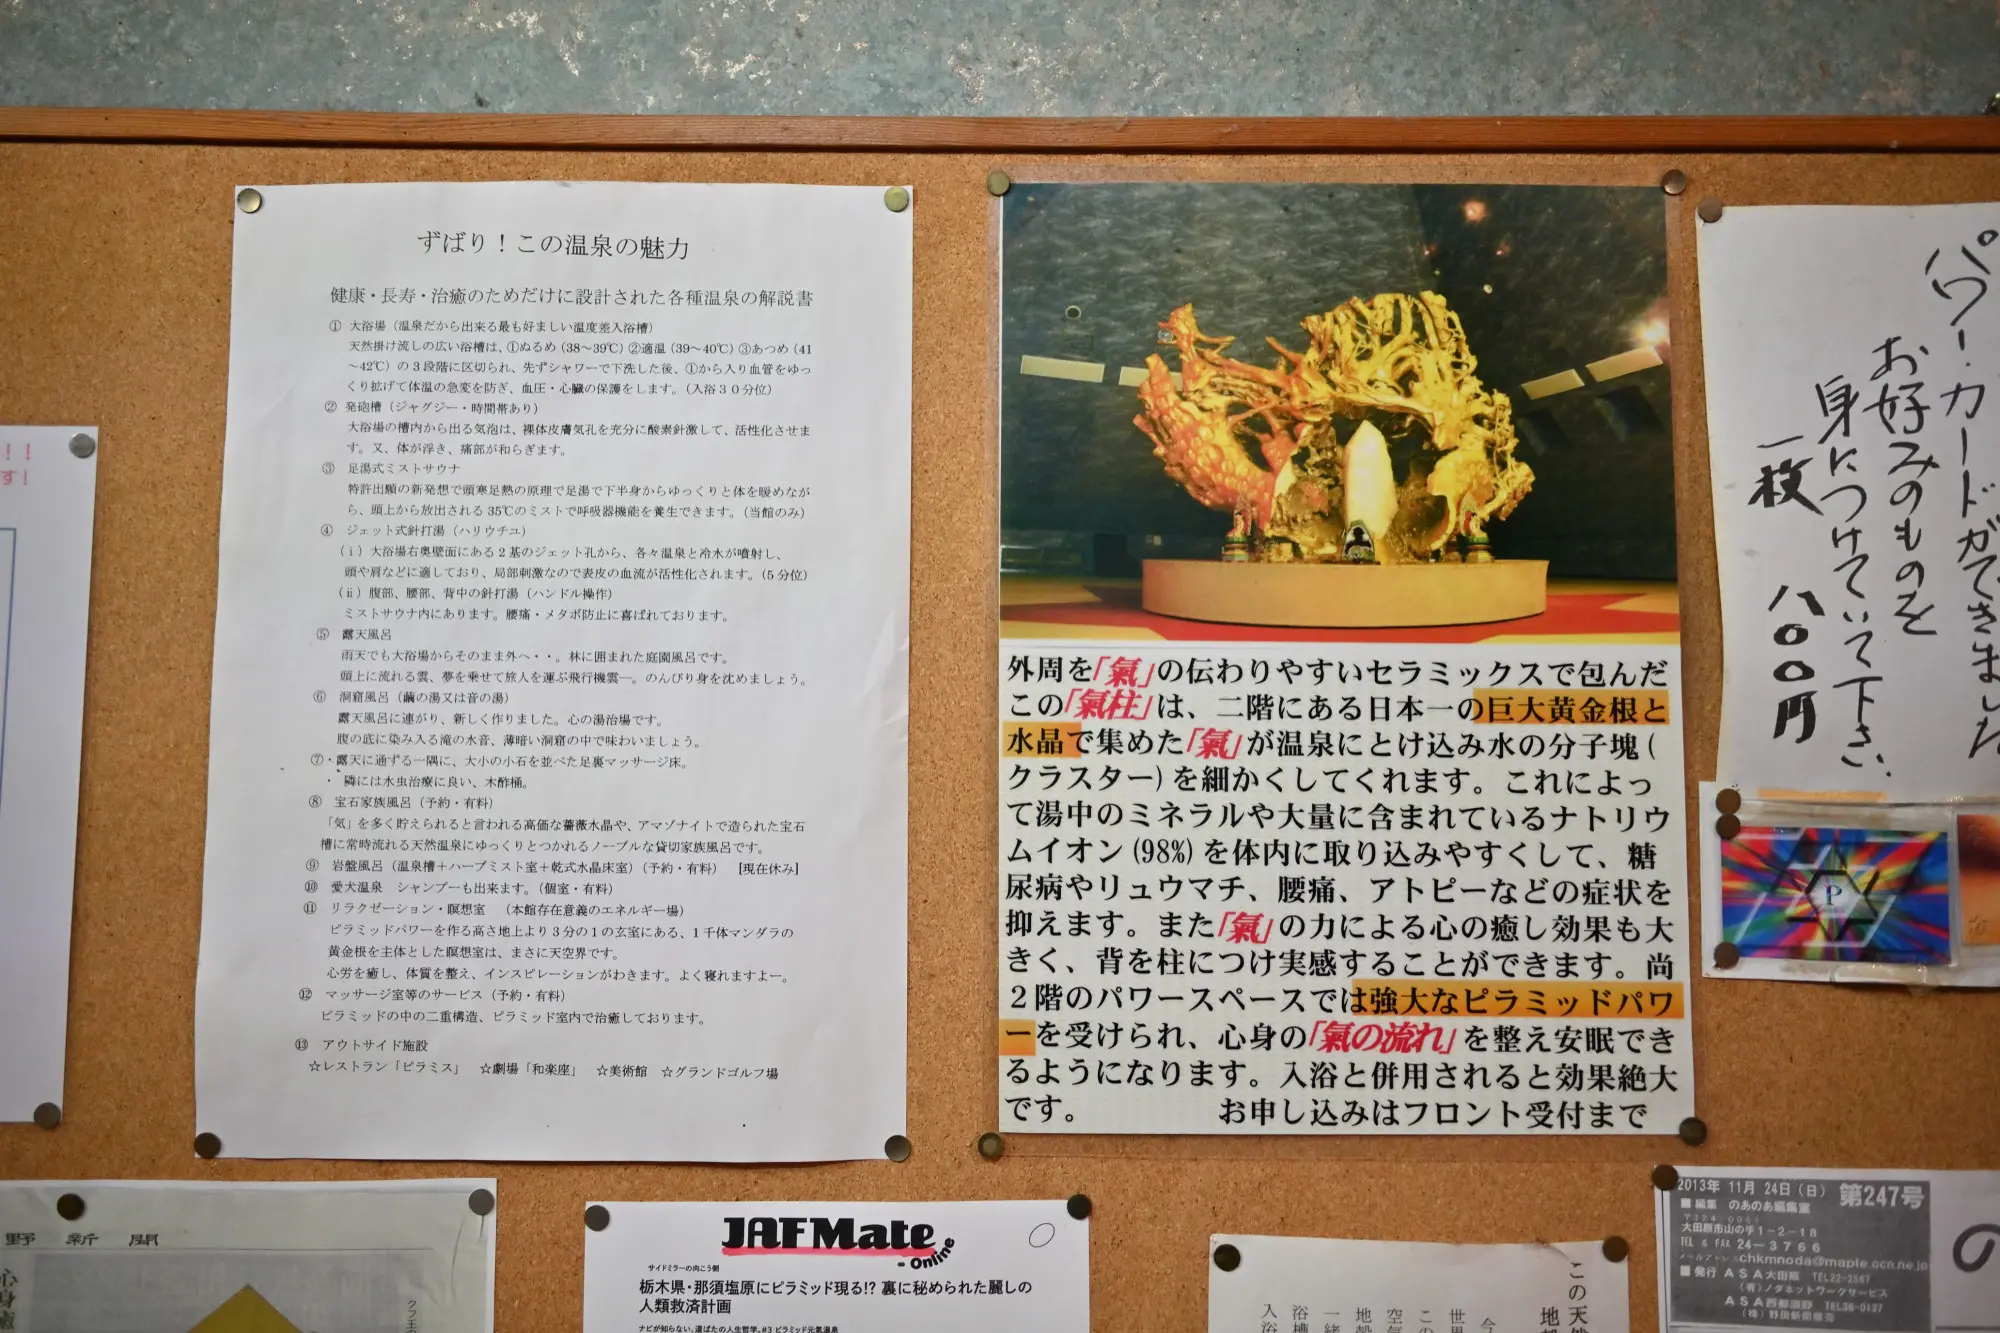 ずばり！この温泉の魅力
健康・長寿・治癒のためだけに設計された各種温泉の解説書
① 大浴場（温泉だから出来る最も好ましい温度差入浴槽）
天然掛け流しの広い浴槽は、①ぬるめ（38～39℃）②適温（39～40℃）③あつめ（41
～42℃）の３段階に区切られ、先ずシャワーで下洗した後、①から入り血管をゆっ
くり拡げて体温の急変を防ぎ、血圧・心臓の保護をします。（入浴３０分位）
② 発砲槽（ジャグジー・時間帯あり）
大浴場の槽内から出る気泡は、裸体皮膚気孔を充分に酸素針激して、活性化させま
す。又、体が浮き、痛部が和らぎます。
③ 足湯式ミストサウナ
特許出願の新発想で頭寒足熱の原理で足湯で下半身からゆっくりと体を暖めなが
ら、頭上から放出される 35℃のミストで呼吸器機能を養生できます。（当館のみ）
④ ジェット式針打湯（ハリウチユ）
（ⅰ）大浴場右奥壁面にある２基のジェット孔から、各々温泉と冷水が噴射し、
頭や肩などに適しており、局部刺激なので表皮の血流が活性化されます。（５分位）
（ⅱ）腹部、腰部、背中の針打湯（ハンドル操作）
ミストサウナ内にあります。腰痛・メタボ防止に喜ばれております。
⑤ 露天風呂
雨天でも大浴場からそのまま外へ・・。林に囲まれた庭園風呂です。
頭上に流れる雲、夢を乗せて旅人を運ぶ飛行機雲―。のんびり身を沈めましょう。
⑥ 洞窟風呂（繭の湯又は音の湯）
露天風呂に連がり、新しく作りました。心の湯治場です。
腹の底に染み入る滝の水音、薄暗い洞窟の中で味わいましょう。
⑦・露天に通ずる一隅に、大小の小石を並べた足裏マッサージ床。
・ 隣には水虫治療に良い、木酢桶。
⑧ 宝石家族風呂（予約・有料）
「気」を多く貯えられると言われる高価な薔薇水晶や、アマゾナイトで造られた宝石
槽に常時流れる天然温泉にゆっくりとつかれるノーブルな貸切家族風呂です。
⑨ 岩盤風呂（温泉槽＋ハーブミスト室＋乾式水晶床室）（予約・有料） ［現在休み］
⑩ 愛犬温泉 シャンプーも出来ます。（個室・有料）
⑪ リラクゼーション・瞑想室 （本館存在意義のエネルギー場）
ピラミッドパワーを作る高さ地上より３分の１の玄室にある、１千体マンダラの
黄金根を主体とした瞑想室は、まさに天空界です。
心労を癒し、体質を整え、インスピレーションがわきます。よく寝れますよー。
⑫ マッサージ室等のサービス（予約・有料）
ピラミッドの中の二重構造、ピラミッド室内で治癒しております。
⑬ アウトサイド施設
☆レストラン「ピラミス」 ☆劇場「和楽座」 ☆美術館 ☆グランドゴルフ場
外周を「氣」の伝わりやすいセラミックスで包んだ
この「氣柱」は、二階にある日本一の巨大黄金根と
水晶で集めた「氣」が温泉にとけ込み水の分子塊（
クラスター）を細かくしてくれます。これによっ
て湯中のミネラルや大量に含まれているナトリウ
ムイオン(98%)を体内に取り込みやすくして、糖
尿病やリュウマチ、腰痛、アトピーなどの症状を
抑えます。また「氣」の力による心の癒し効果も大
きく、背を柱につけ実感することができます。尚
２階のパワースペースでは強大なピラミッドパワ
ーを受けられ、心身の「氣の流れ」を整え安眠でき
るようになります。入浴と併用されると効果絶大
です。 お申し込みはフロント受付まで
パワー！カードができました
お好みのものを
身につけていて下さい。
一枚 八〇〇円
P
！！
す！
野 新 聞
心身癒
クフ王の
JAFMate
Online
サイドミラーの向こう側
栃木県・那須塩原にピラミッド現る!? 裏に秘められた麗しの
人類救済計画
ナビが知らない、道ばたの人生哲学。#3 ピラミッド元氣温泉
この天然
地殻
今
世界
この
空気
地殻
一緒
浴槽
入浴
2013年 11月 24日（日） 第247号
■編集 のあのあ編集室
〒324-0051
大田原市山の手1-2-18
TEL & FAX 24-3766
メールアドレス chkmnoda@maple.ocn.ne.jp
■発行 ASA大田原 TEL22-2567
（有）ノダネットワークサービス
ASA西那須野 TEL36-0137
の